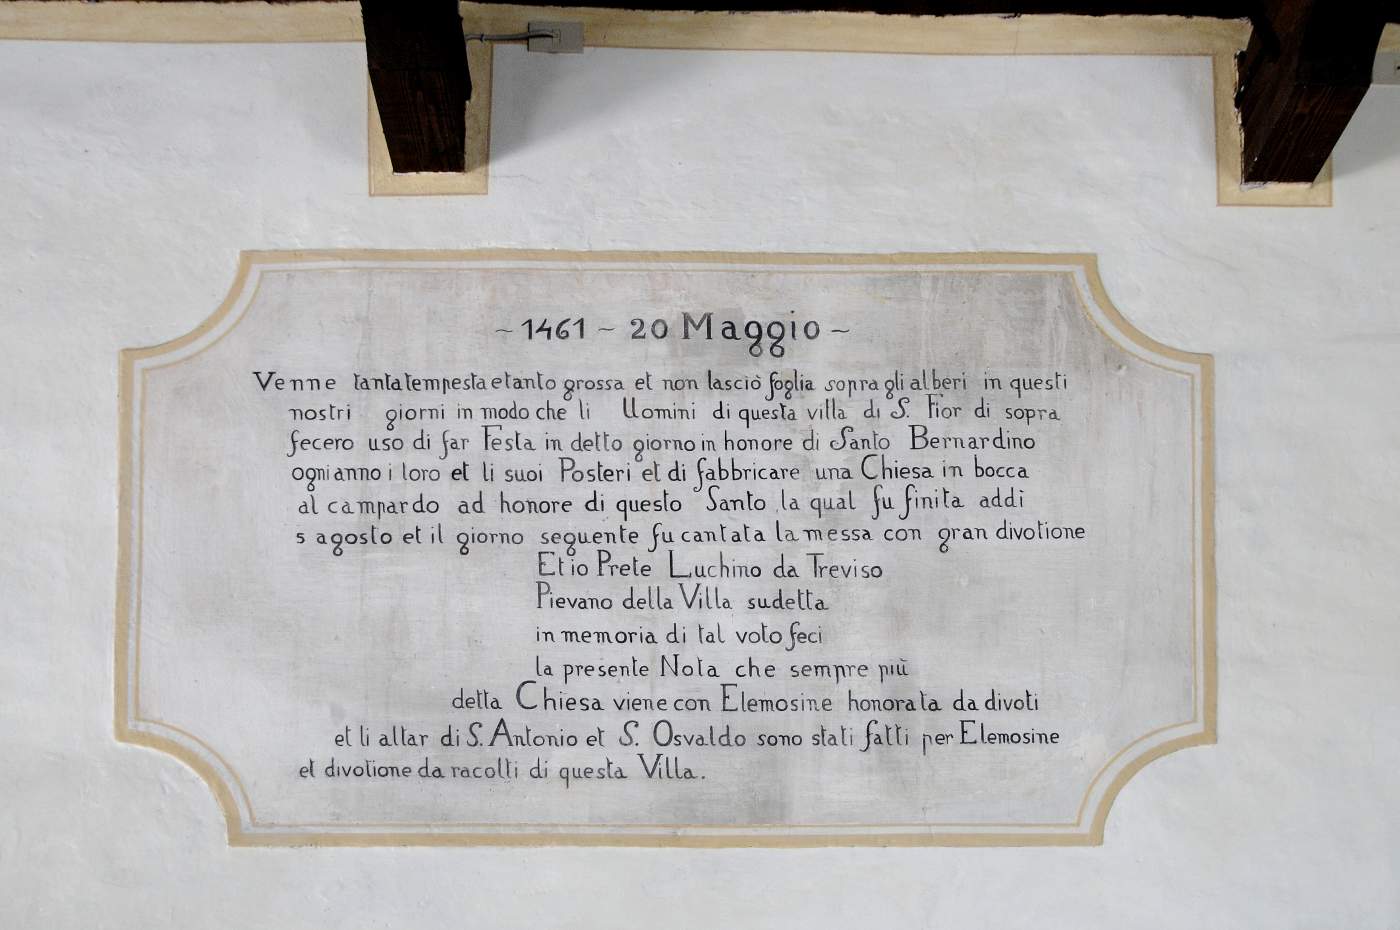 ~ 1461 ~ 20 Maggio ~
Venne tanta tempesta et anto grossa et non lasciò foglia sopra gli alberi in questi
nostri giorni in modo che li Uomini di questa villa di S. Fior di sopra
fecero uso di far Festa in detto giorno in honore di Santo Bernardino
ogni anno i loro et li suoi Posteri et di fabbricare una Chiesa in bocca
al campardo ad honore di questo Santo la qual fu finita addì
5 agosto et il giorno seguente fu cantata la messa con gran divotione
Et io Prete Luchino da Treviso
Pievano della Villa sudetta
in memoria di tal voto feci
la presente Nota che sempre più
detta Chiesa viene con Elemosine honorata da divoti
et li altar di S. Antonio et S. Osvaldo sono stati fatti per Elemosine
et divotione da racolti di questa Villa.